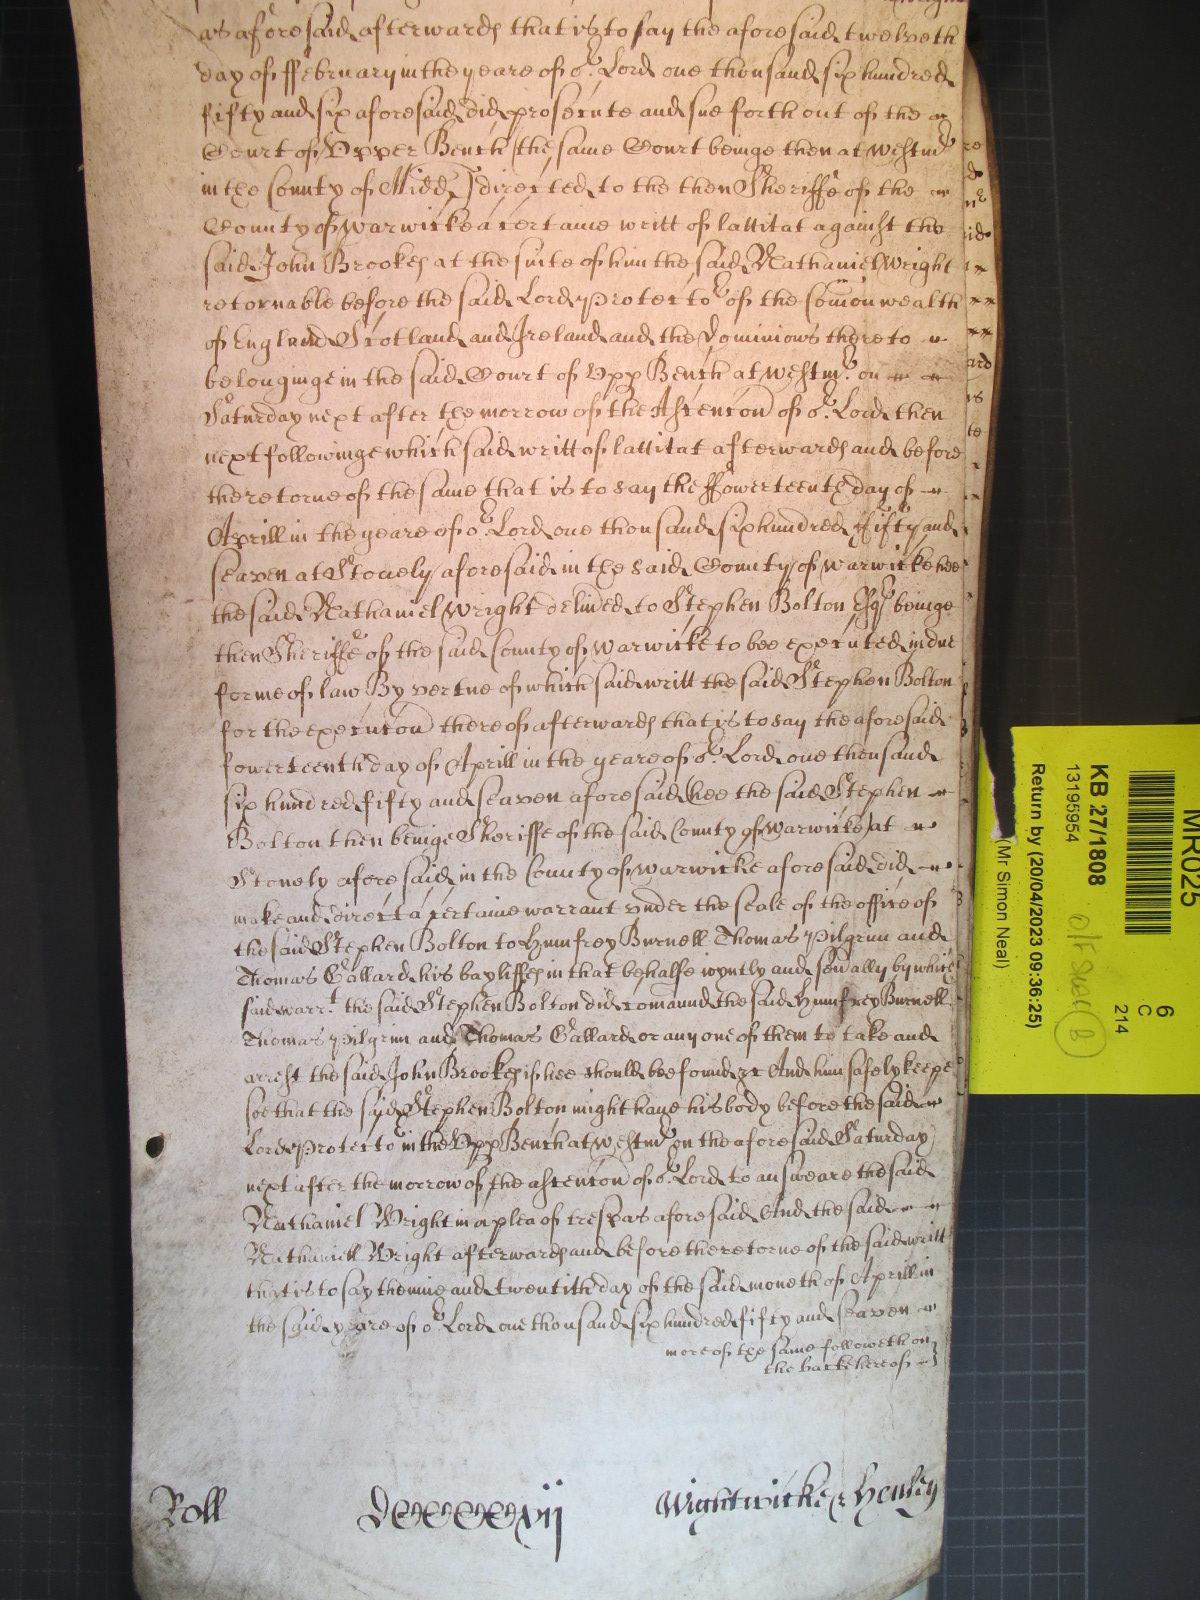 as aforesaid afterwards that is to say the aforesaid twelveth
day of ffebruary in the yeare of or Lord one thousand six hundred
fifty and six aforesaid did prosecute and sue forth out of the
Court of Upper Bench (the same Court beinge then at Westmr
in the County of Midd) directed to the then Sheriffe of the
County of Warwicke a certaine writt of lattitat against the
said John Brookes at the suite of him the said Nathaniel Wright
retornable before the said Lord Protector of the Comonwealth
of England Scotland and Ireland and the Dominions thereto
belonginge in the said Court of Upp Bench at Westmr on
Saturday next after the morrow of the Ascencon of or Lord then
next followinge which said writt of lattitat afterwards and before
the retorne of the same that is to say the ffowerteenth day of
Aprill in the yeare of or Lord one thousand six hundred fifty and
seaven at Stonely aforesaid in the said County of Warwicke hee
the said Nathaniel Wright delived to Stephen Bolton Esqr beinge
then Sheriffe of the said County of Warwicke to bee executed in due
forme of law By vertue of which said writt the said Stephen Bolton
for the execucon thereof afterwards that is to say the aforesaid
fowerteenth day of Aprill in the yeare of or Lord one thousand
six hundred fifty and seaven aforesaid (hee the said Stephen
Bolton then beinge Sheriffe of the said County of Warwicke) at
Stonely aforesaid in the County of Warwicke aforesaid did
make and direct a certaine warrant under the seale of the office of
the said Stephen Bolton to Humfrey Burnell Thomas Pilgrim and
Thomas Gallard his bayliffes in that behalfe ioyntly and sevally by which
said warrt the said Stephen Bolton did comaund the said Humfrey Burnell
Thomas Pilgrim and Thomas Gallard or any one of them to take and
arrest the said John Brookes if hee should bee found &c And him safely keepe
soe that the said Stephen Bolton might have his body before the said
Lord Protector in the Upp Bench at Westmr on the aforesaid Saturday
next after the morrow of the ascencon of or Lord to answeare the said
Nathaniel Wright in a plea of trespas aforesaid And the said
Nathaniell Wright afterwards and before the retorne of the said writt
that is to say the nine and twentith day of the said moneth of Aprill in
the said yeare of or Lord one thousand six hundred fifty and seaven
more of the same followeth on
the backe hereof
Roll
Wightwicke & Henley
MR025
6
C
214
KB 27/1808
13195954
Return by (20/04/2023 09:36:25)
(Mr Simon Neal)